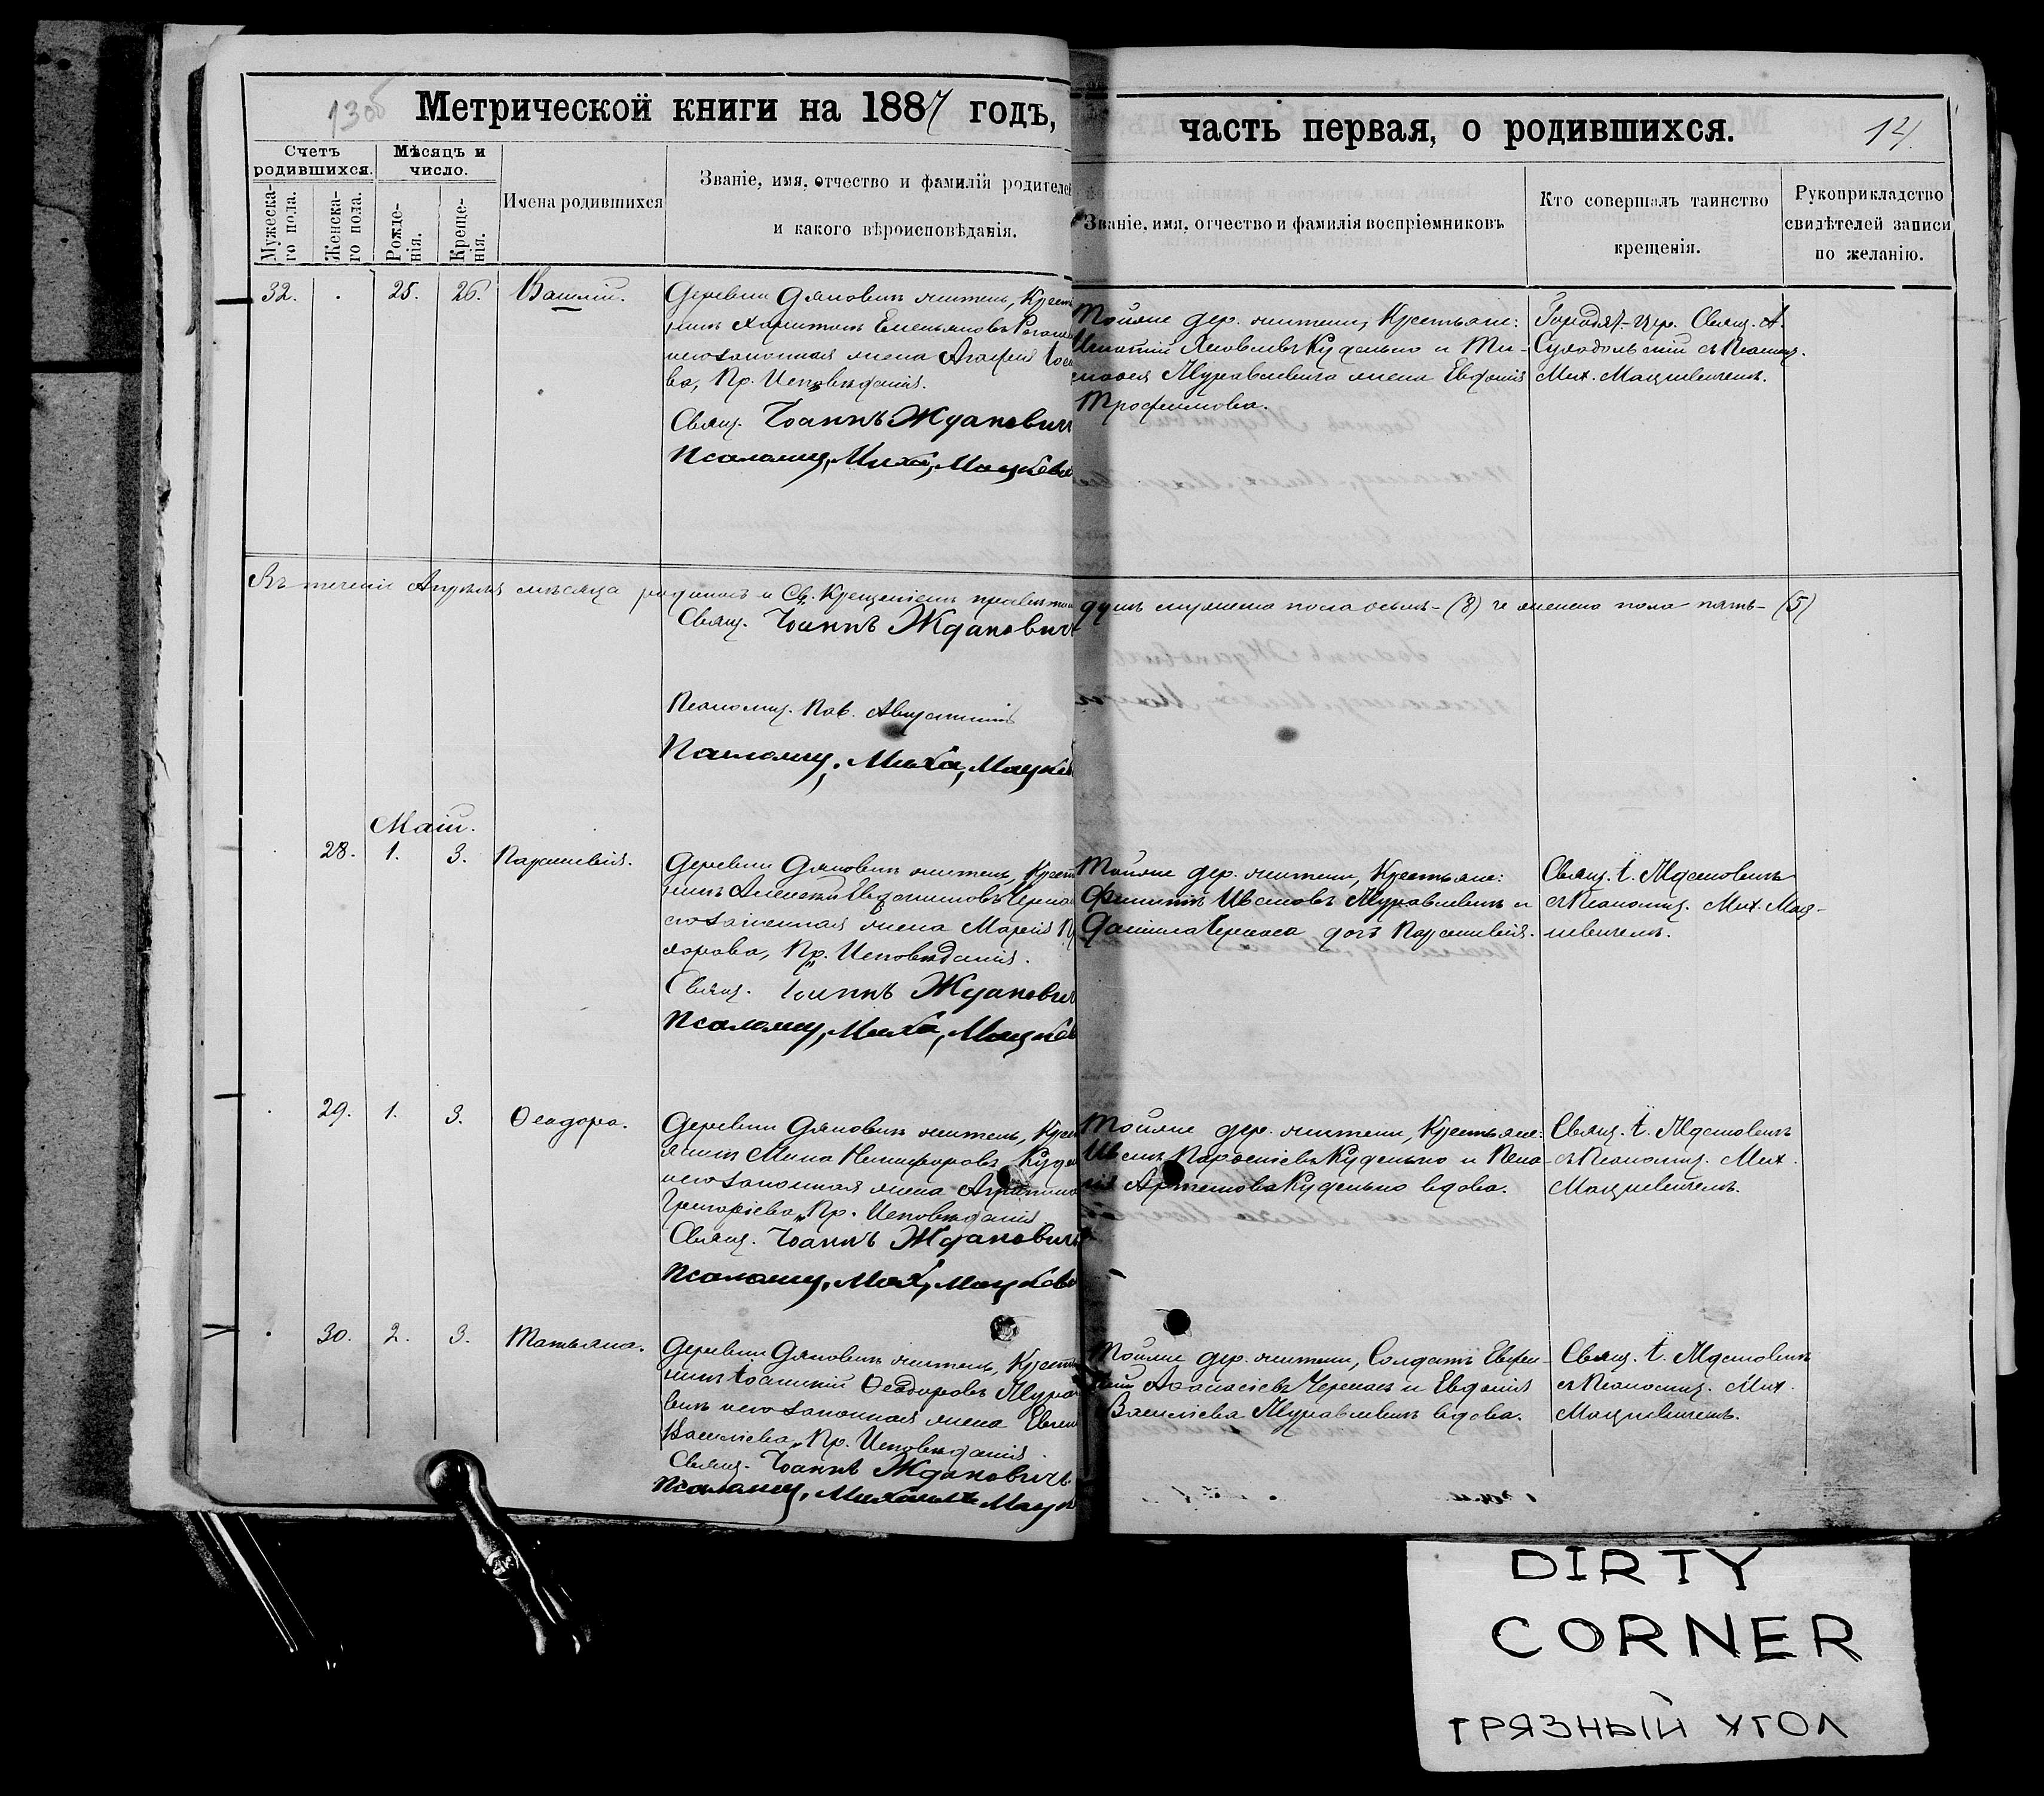 13об
Метрической книги на 1887 годъ,
часть первая, о родившихся.
14.
Счетъ родившихся.
Мужеска-го пола.
Женска-го пола.
Мѣсяцъ и число.
Рожде-нія.
Креще-нія.
Имена родившихся
Званіе, имя, отчество и фамилія родителей
и какого вѣроисповѣданія.
Званіе, имя, отчество и фамилія воспріемниковъ
Кто совершалъ таинство
крещенія.
Рукоприкладство
свидѣтелей записи
по желанію.
32.
25.
26.
Василій.
Деревни Дяковичъ житель, Крест
нинъ Харитонъ Емельяновъ
его законная жена Агафія
ва, Пр. Исповѣданія.
Свящ. Іоаннъ Ждановичъ
Псаломщ. Миха, Мацкеви
Тойже дер. жители, Крестьяне:
Игнатій Яковлевъ Куделько и Ти-
мофея Муравлевича жена Евдокія
Трофимова.
Свящ. А.
съ Псаломщ.
Мих. Мацкевичемъ.
Въ теченіи Апрѣля мѣсяца родилось и Св. Крещеніемъ просвѣщено
душъ мужеска пола осьмъ- (8) и женска пола пять- (5)
Свящ. Іоаннъ Ждановичъ
Псаломщ. Пав.
Псаломщ. Миха, Мацкев
Маій.
28.
1.
3.
Параскевія.
Деревни Дяковичъ житель, Крест
нинъ Алексій Евдокимовъ
его законная жена Марія
, Пр. Исповѣданія.
Свящ. Іоаннъ Ждановичъ
Псаломщ, Миха, Мацкев
Тойже дер. жители, Крестьяне:
Филиппъ Ивановъ Муравлевичъ и
Даніила Черкаса дочь Параскевія.
Свящ. І. Ждановичъ
съ Псаломщ. Мих. Мац-
кевичемъ.
29.
1.
3.
Ѳеодора.
Деревни Дяковичъ житель, Крес
янинъ Мина Никифоровъ Куде
его законная жена Агрипина
Григоріева, Пр. Исповѣданія
Свящ. Іоаннъ Ждановичъ
Псаломщ, Мих, Мацкеви
Тойже дер. жители, Крестьяне:
Куделько и Пела-
гія Артемова Куделько вдова.
Свящ. І. Ждановичъ
съ Псаломщ. Мих.
Мацкевичемъ.
30.
2.
3.
Татьяна.
Деревни Дяковичъ житель, Крест
нинъ Іоанникій Ѳеодоровъ Мура
вичъ его законная жена
Васильева, Пр. Исповѣданія.
Свящ. Іоаннъ Ждановичъ
Псаломщ, Михаилъ Мацк
Тойже дер. жители, Солдатъ
Аѳанасіевъ Черкасъ и Евдокія
Васильева Муравлевичъ вдова.
Свящ. І. Ждановичъ
съ Псаломщ. Мих.
Мацкевичемъ.
DIRTY
CORNER
ГРЯЗНЫЙ УГОЛ